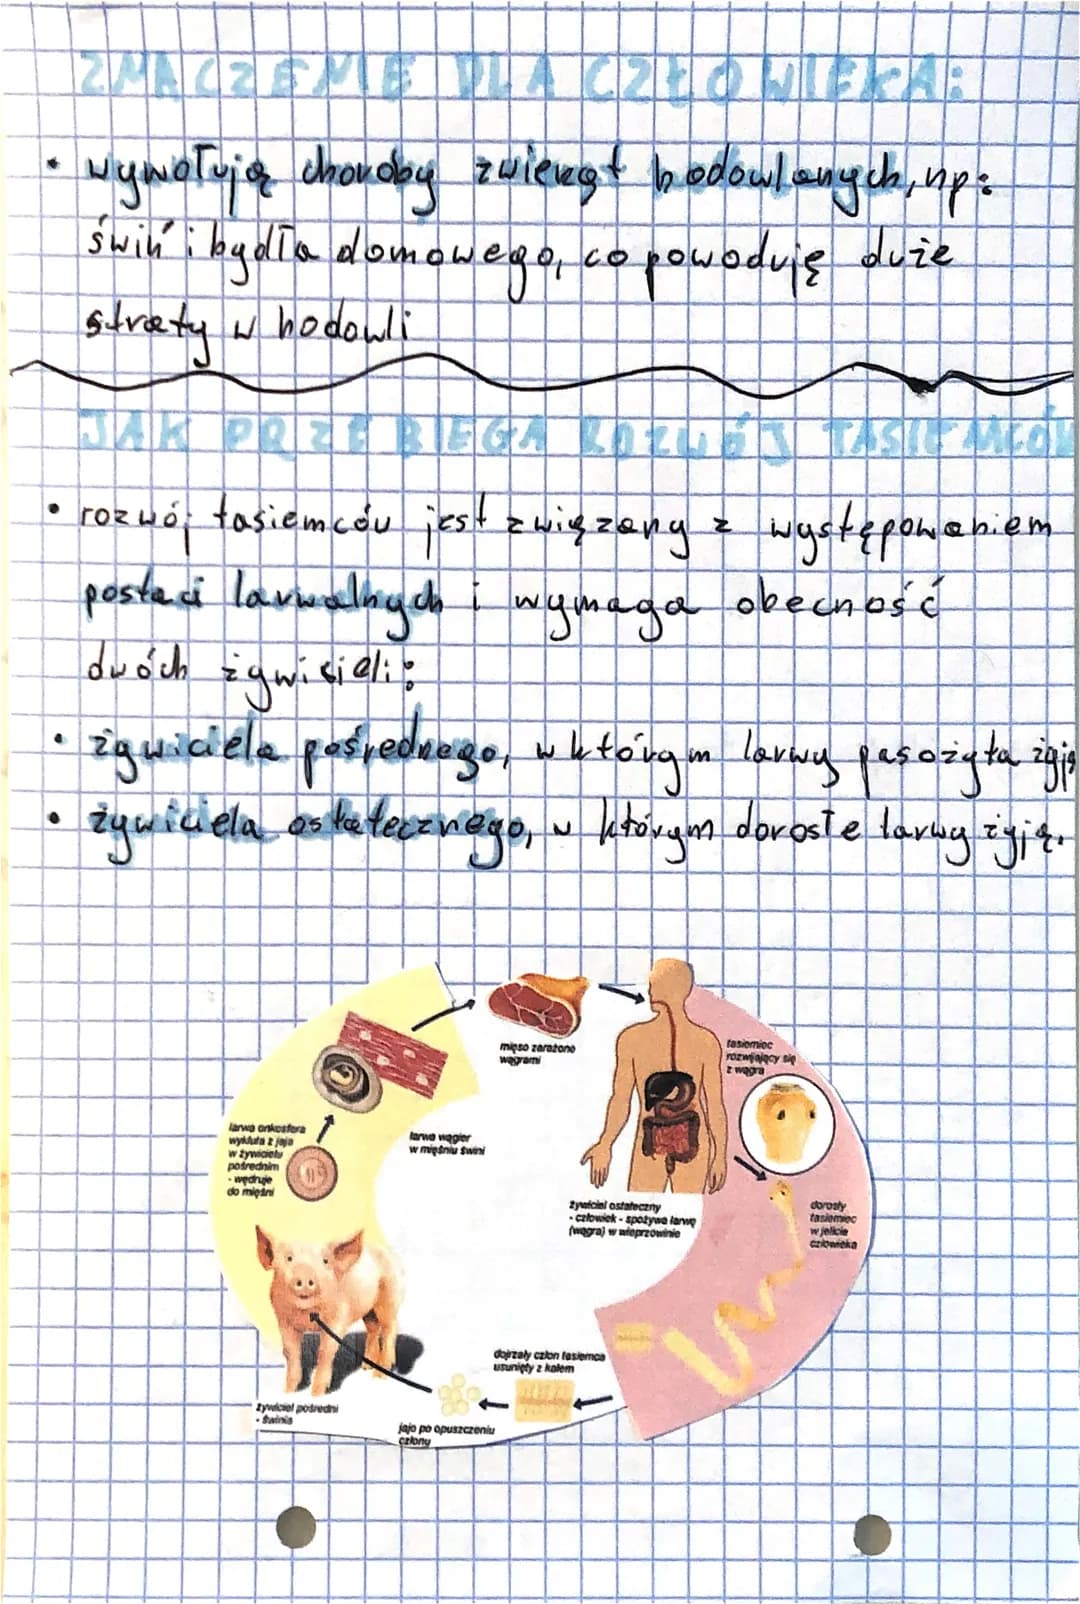 ZNACZENIE DLA CZŁOWIEKA:
• wywołują choroby zwierząt hodowlanych, np:
świń i bydła domowego, co powoduję duże
straty w hodowli
JAK PRZEBIEGA ROZWÓJ TASIEMCÓW
• rozwój tasiemców jest związany z występowaniem
postaci larwalnych i wymaga obecność
dwóch żywicieli:
• żywiciela pośredniego, w którym larwy pasożyta żyją
• żywiciela ostatecznego, w którym dorosłe larwy żyją.
mięso zarażone
wągrami
tasiemiec
rozwijający się
z wągra
larwa onkosfera
wykluta z jaja
w żywicielu
pośrednim
- wędruje
do mięśni
larwa wągier
w mięśniu świni
żywiciel ostateczny
- człowiek - spożywa larwę
(wągra) w wieprzowinie
dorosły
tasiemiec
w jelicie
człowieka
dojrzały człon tasiemca
usunięty z kałem
żywiciel pośredni
- świnia
jajo po opuszczeniu
członu